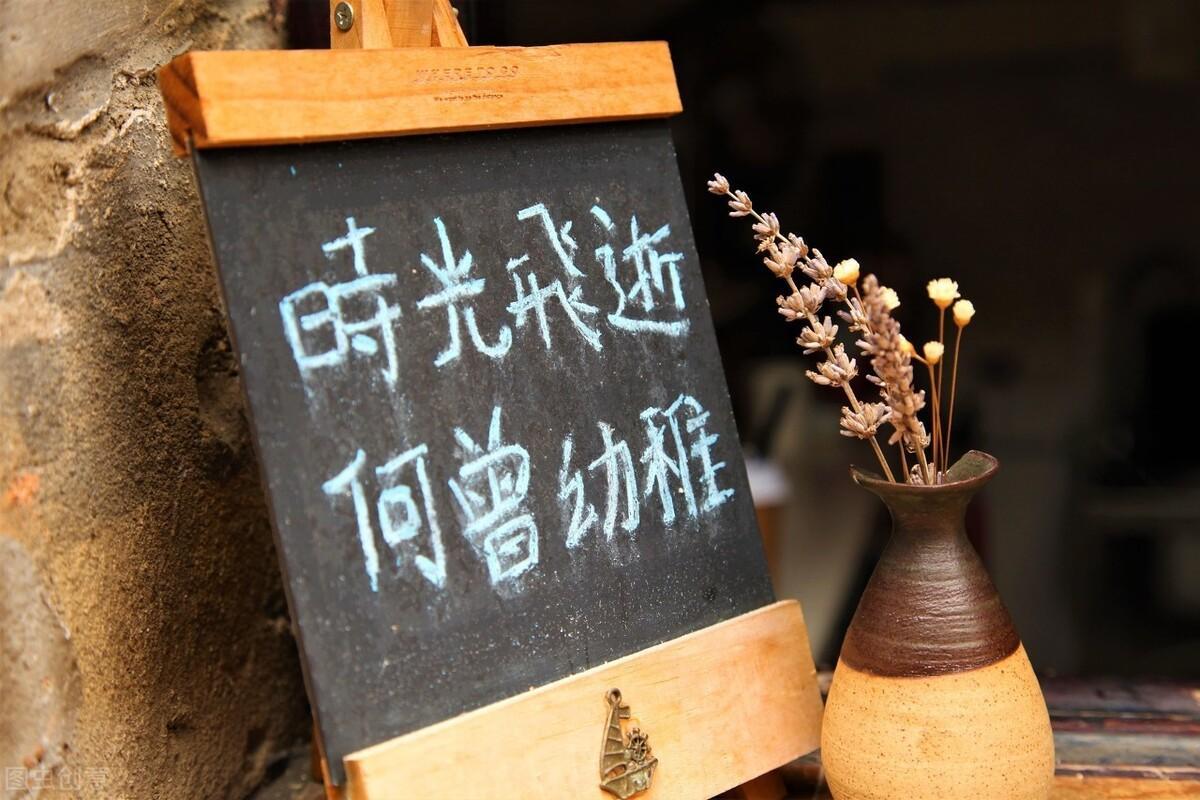 時光飛逝
何曾幼稚
图虫创意